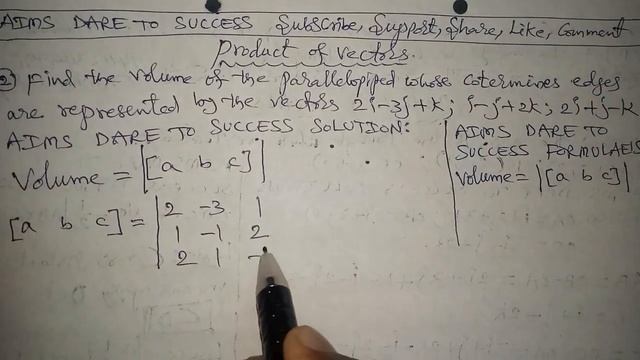 AIMS DARE TO SUCCESS Subscribe, Support, Share, Like, Comment
Product of vectors.
2) Find the volume of the parallelopiped whose cotermines edges
are represented by the vectors 2i-3j+k; i-j+2k; 2i+j-k
AIMS DARE TO SUCCESS SOLUTION:
Volume = |[a b c]|
[a b c] = | 2 -3 1
1 -1 2
2 1 -
AIMS DARE TO
SUCCESS FORMULAES
Volume = |[a b c]|